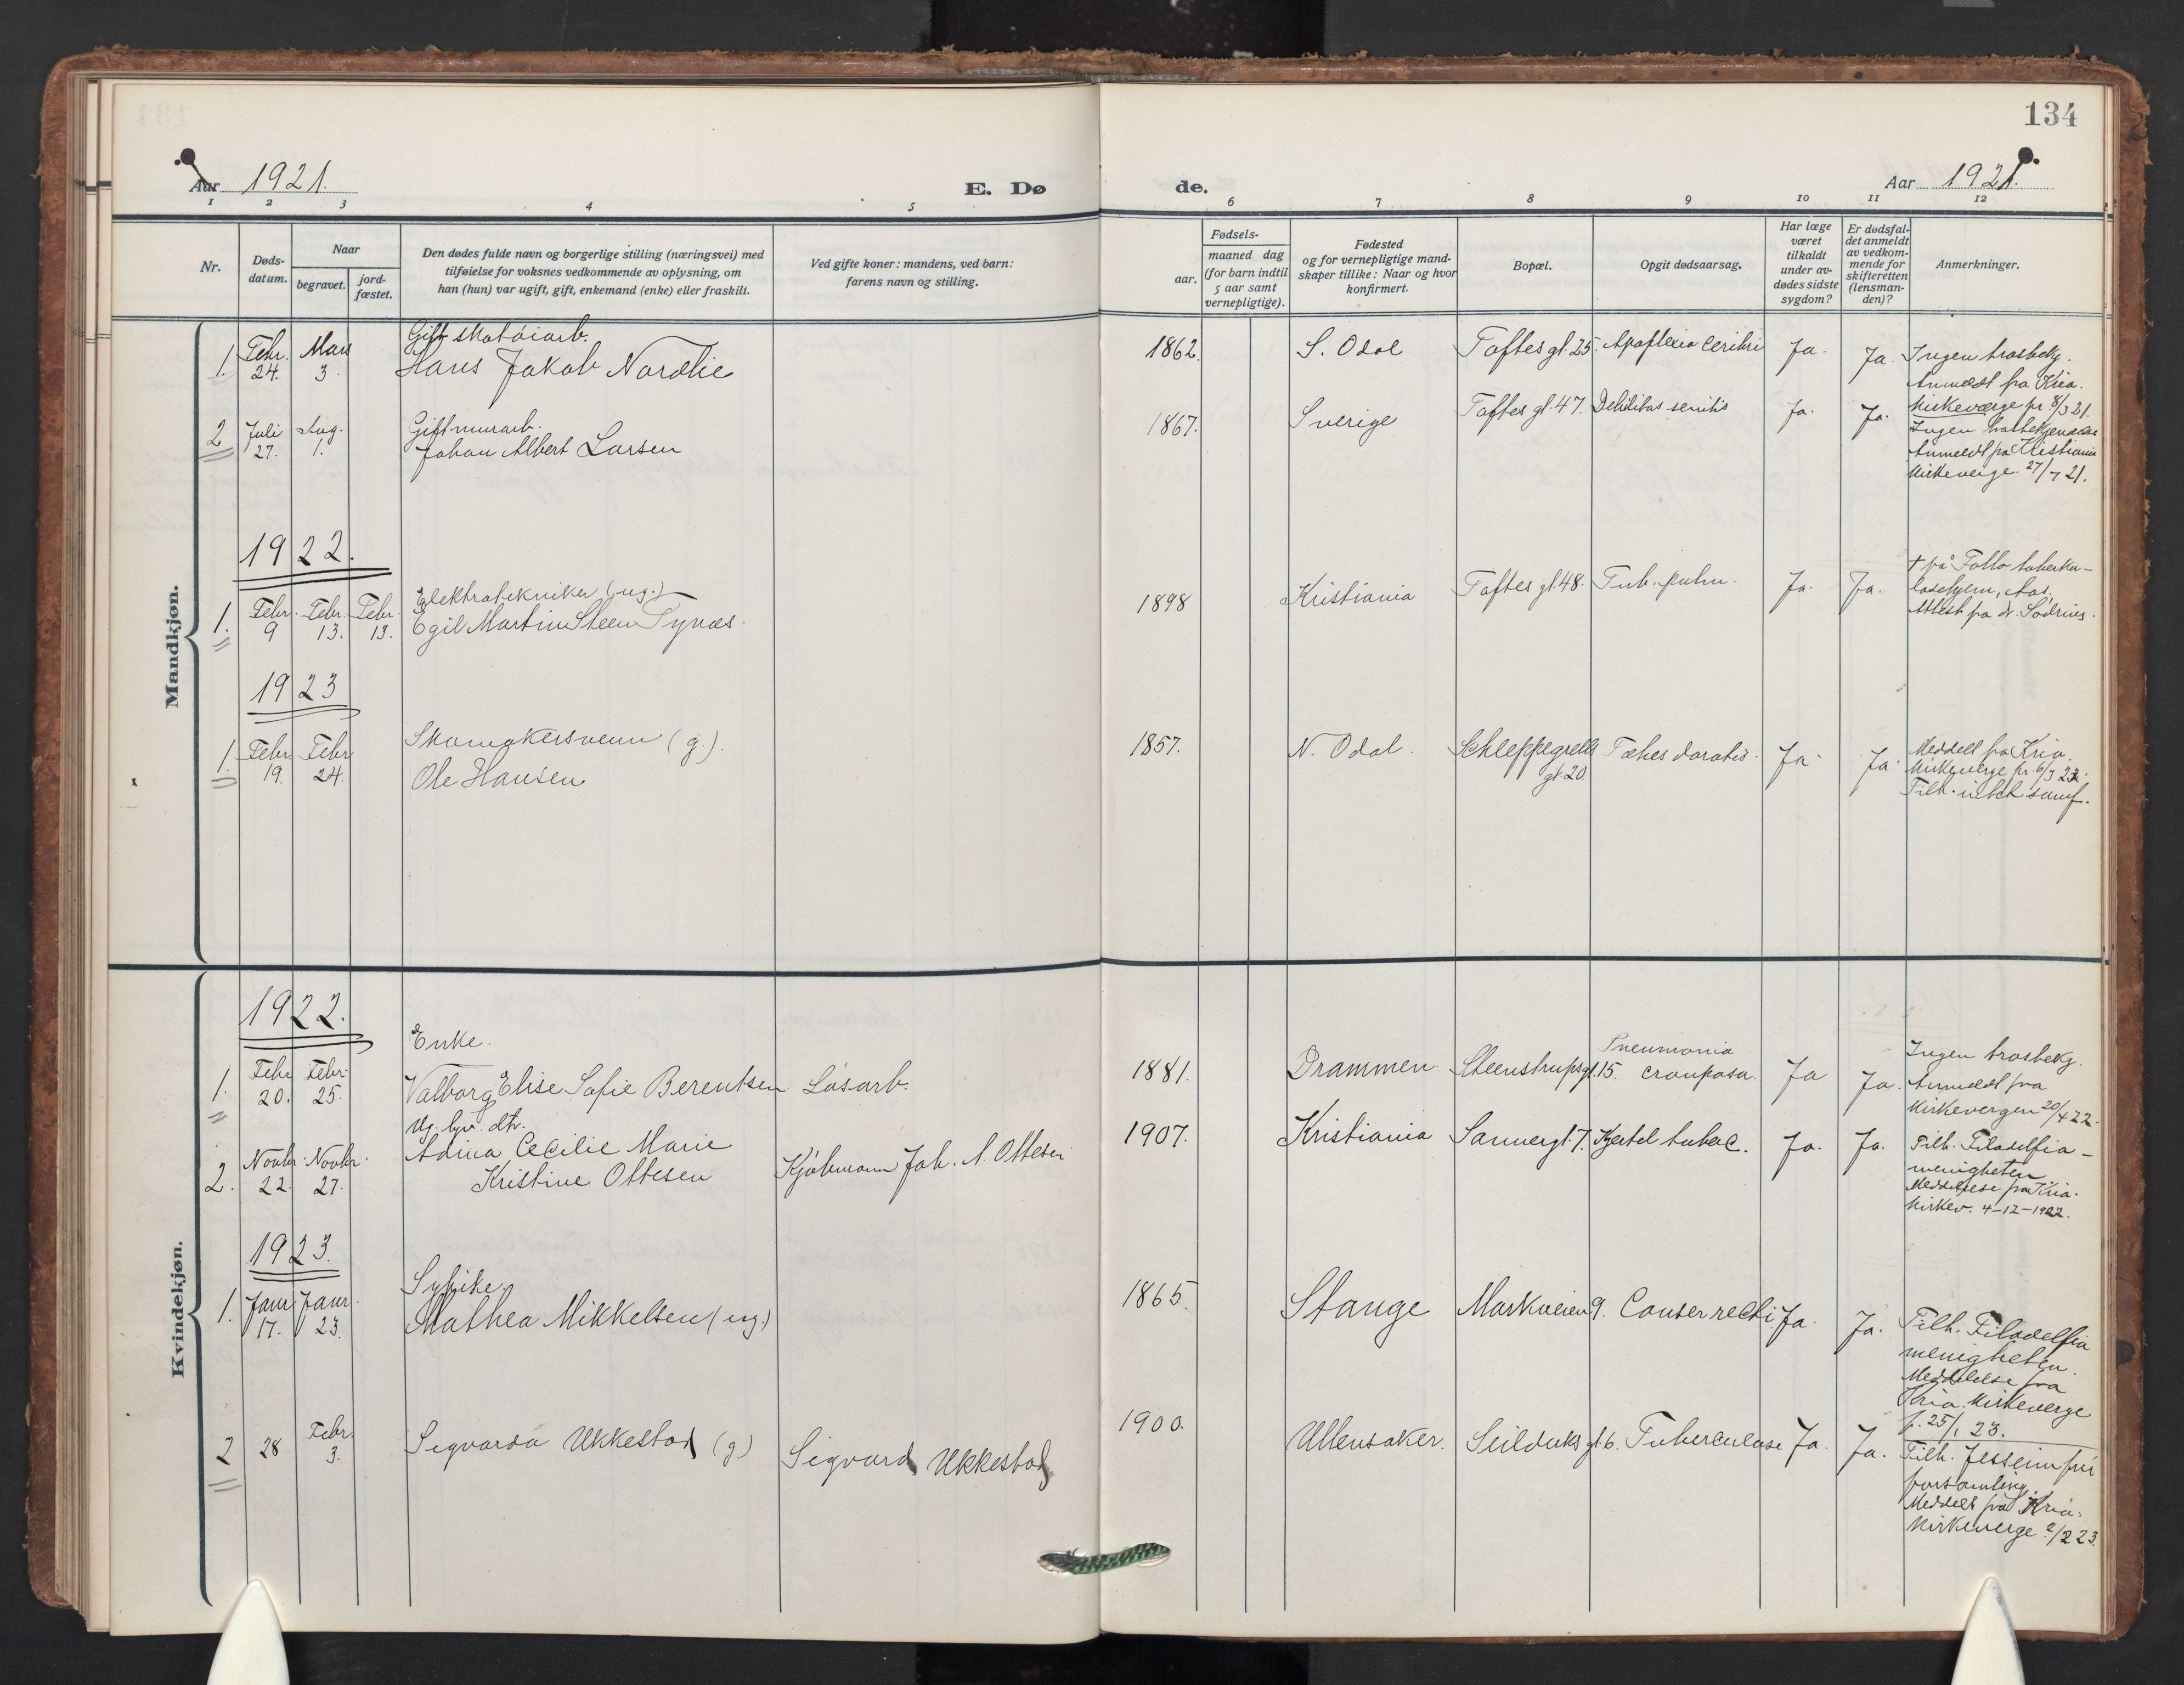 134
Aar 1921.
E. Dø
de.
Aar 1921.
1 2 3 4 5 6 7 8 9 10 11 12
Nr.
Døds-
datum.
Naar
begravet.
jord-
fæstet.
Den dødes fulde navn og borgerlige stilling (næringsvei) med
tilføielse for voksnes vedkommende av oplysning, om
han (hun) var ugift, gift, enkemand (enke) eller fraskilt.
Ved gifte koner: mandens, ved barn:
farens navn og stilling.
Fødsels-
aar.
maaned dag
(for barn indtil
5 aar samt
vernepligtige).
Fødested
og for vernepligtige mand-
skaper tillike: Naar og hvor
konfirmert.
Bopæl.
Opgit dødsaarsag.
Har læge
været
tilkaldt
under av-
dødes sidste
sygdom?
Er dødsfal-
det anmeldt
av vedkom-
mende for
skifteretten
(lensman-
den)?
Anmerkninger.
Mandkjøn.
1. Febr. 24. Mars 3.
Gift skotøiarb.
Hans Jakob Nordlie
1862. S. Odal Toftes gt. 25. Apoplexia cerebri Ja. Ja.
Ingen trosbekj.
Anmeldt fra Kria.
Kirkeverge pr. 8/3 21.
2 Juli 27. Aug. 1.
Gift murarb.
Johan Albert Larsen
1867. Sverige Toftes gt. 47. Debilitas senilis Ja. Ja.
Ingen trosbekjendelse
Anmeldt fra Kristiania
Kirkeverge 27/7 21.
1922.
1. Febr. 9 Febr. 13. Febr. 13.
Elektrotekniker (ug.)
Egil Martin Steen Tynæs.
1898 Kristiania Toftes gt. 48. Tub. pulm. Ja. Ja.
† på Follo tuberku-
losehjem, Aas.
Attest fra dr. Sødring.
1923
1. Febr. 19. Febr 24.
Skomakersvenn (g.).
Ole Hansen
1857. N. Odal. Schleppegrells
gt. 20. Tabes dorsalis. Ja. Ja.
Meddelt fra Kria.
Kirkeverge pr. 6/3 23.
Tilh. intet samf.
Kvindekjøn.
1922.
1. Febr 20. Febr. 25.
Enke.
Valborg Elise Sofie Berentsen Løsarb.
1881. Drammen Steenstrupsgt. 15. Pneumonia
crouposa. Ja Ja.
Ingen trosbekj.
Anmeldt fra
Kirkevergen 20/4 22.
2. Novbr. 22. Novbr. 27.
Ug. dtr.
Adina Cecilie Marie
Kristine Ottesen Kjøbmann Joh. A. Ottesen
1907. Kristiania Sannergt. 7. Kjertel tuberc. Ja. Ja.
Tilh. Filadelfia-
menigheten
Meddelelse fra Kria.
Kirkev. 4-12-1922.
1923.
1. Janr. 17. Janr. 23.
Sypike
Mathea Mikkelsen (ug.)
1865. Stange Markveien 9. Cancer recti. Ja. Ja.
Tilh. Filadelfia
menigheten.
Meddelelse fra
Kria. Kirkeverge
f. 25/1 23.
2 28 Febr. 3.
Sigvarda Ukkestad (g) Sigvard Ukkestad
1900. Ullensaker. Seilduks gt. 6. Tuberculose Ja. Ja.
Tilh. Jesseim fri
forsamling.
Meddelt fra Kria.
Kirkeverge 2/2 23.